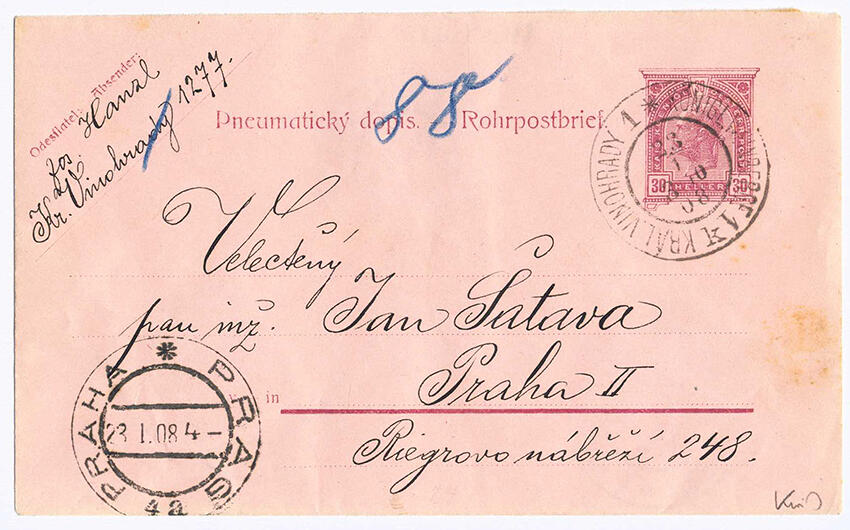 Odesílatel: Absender:
Jos. Hanzl
Kr. Vinohrady 1277.
88
Pneumatický dopis. – Rohrpostbrief.
30 HELLER 30
KRÁL. VINOHRADY 1
23
1
08
Velectěný
pan inž. Jan Šatava
in Praha II
Riegrovo nábřeží 248.
PRAHA * PRAG
23.I.08 4–
4a